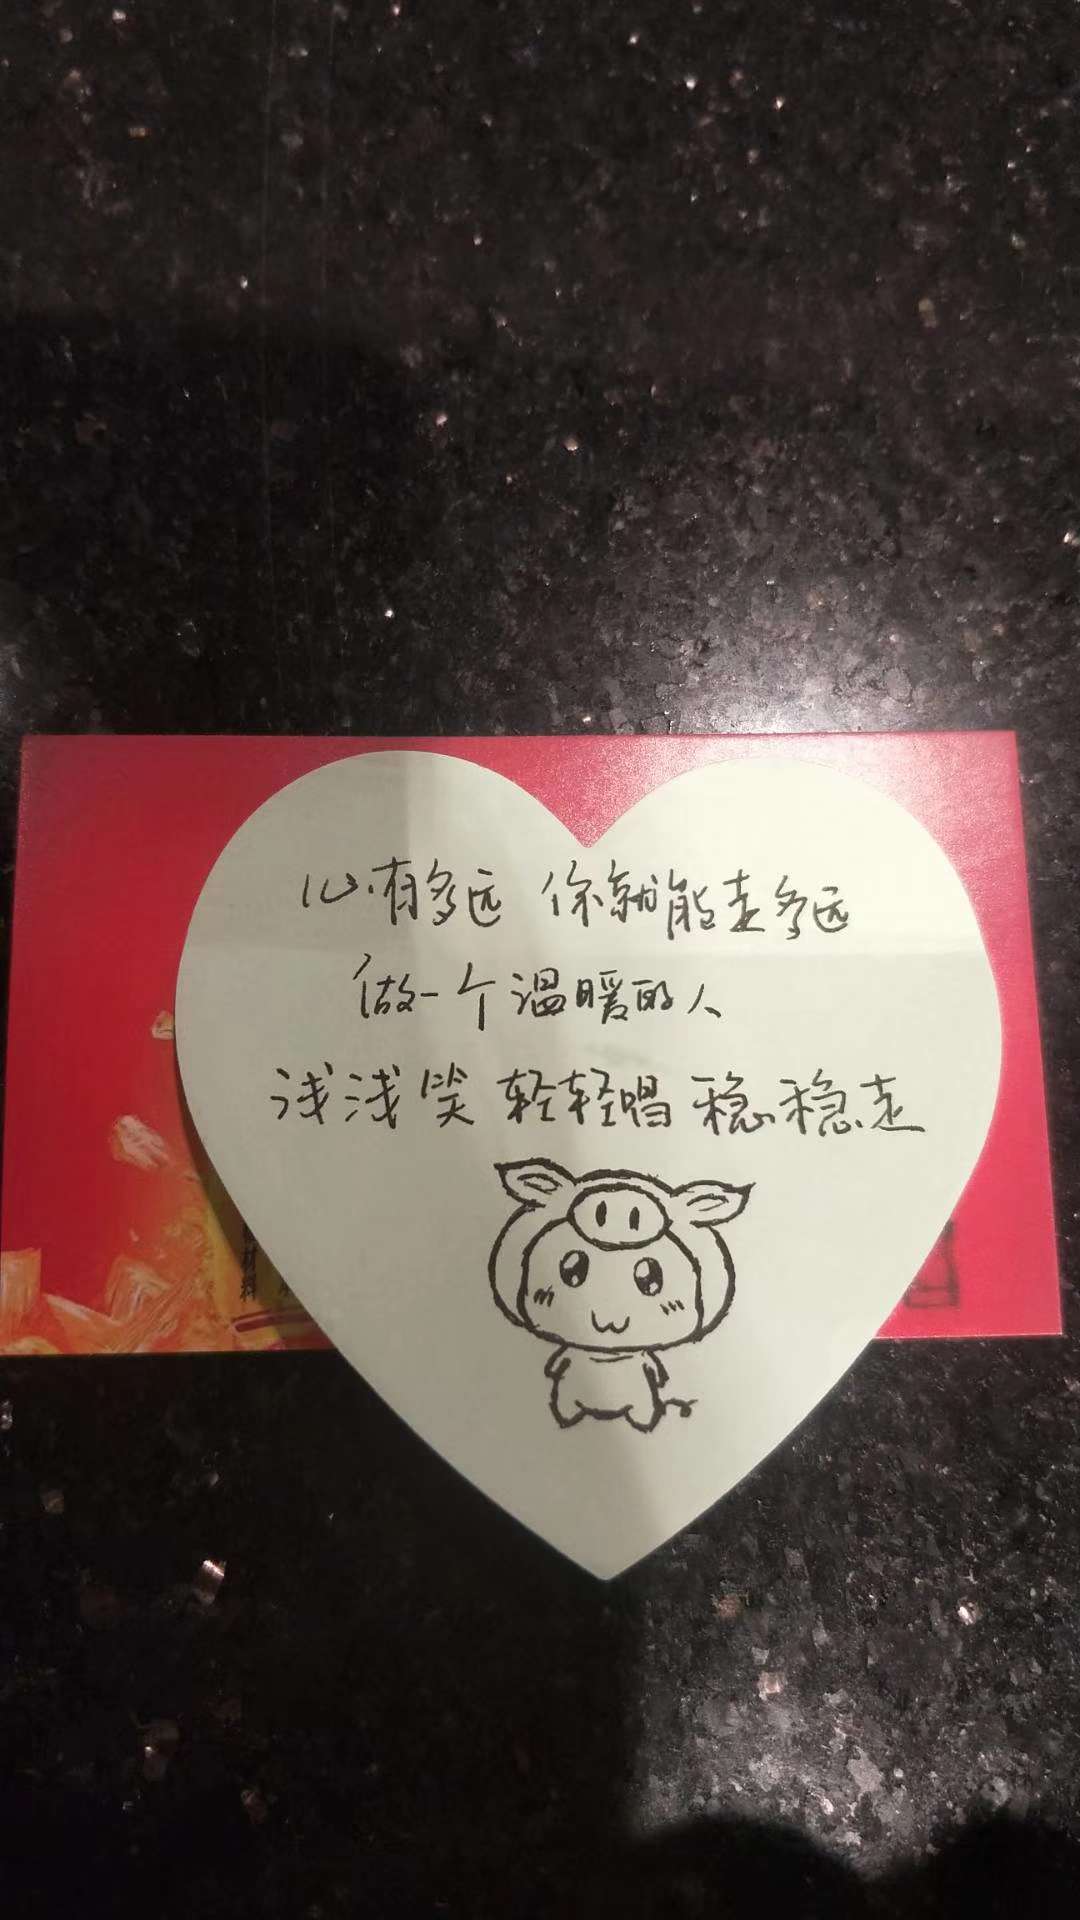 心有多远 你就能走多远
做一个温暖的人
浅浅笑 轻轻唱 稳稳走
材料